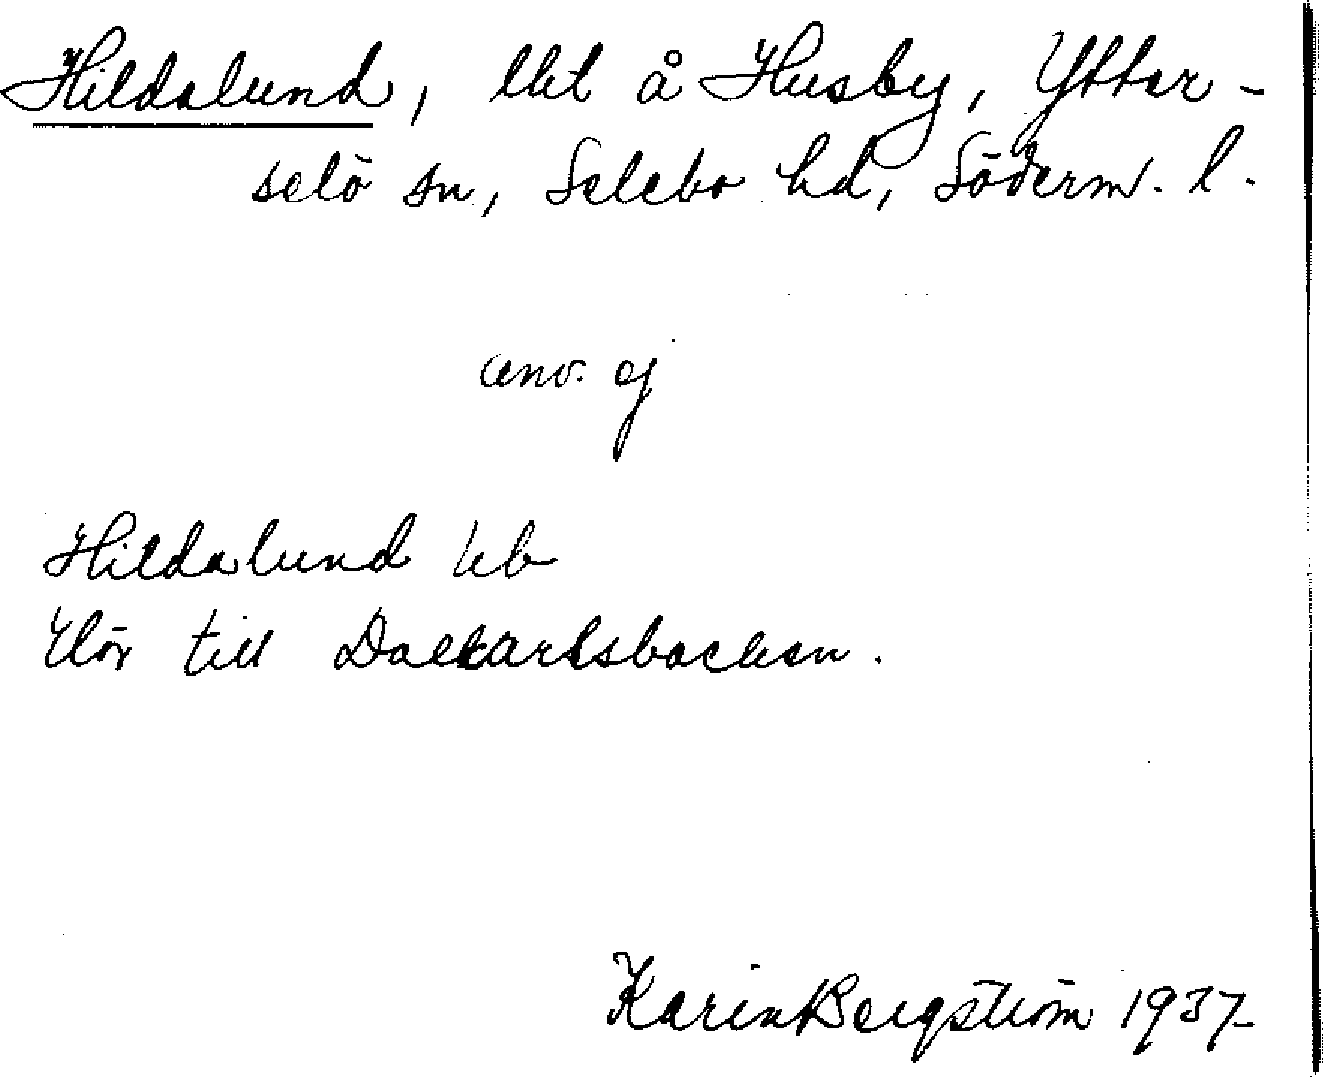 Hildalund, lht å Husby, Ytter-
selö sn, Selebo hd, Söderm. l.
anv. ej
Hildalund hb
Hör till Dalkarlsbacken.
Karin Bergström 1937